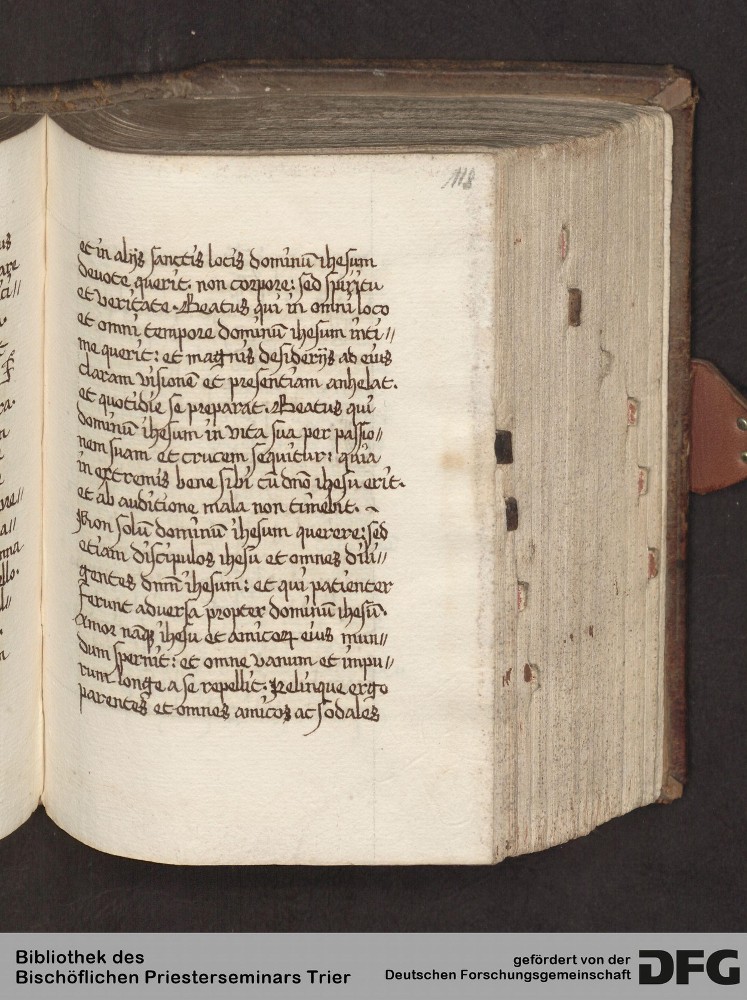 118
et in alijs sanctis locis dominū ihesum
deuote querit. non corpore: sed spiritu
et veritate. Beatus qui in omni loco
et omni tempore dominū ihesum inti//
me querit: et magnis desiderijs ad eius
claram visionē et presentiam anhelat.
et quotidie se preparat. Beatus qui
dominū ihesum in vita sua per passio//
nem suam et crucem sequitur: quia
in extremis bene sibi cū dn̄o ihesu erit.
et ab auditione mala non timebit.
Non solū dominū ihesum querere: sed
etiam discipulos ihesu et omnes dili//
gentes dn̄m ihesum: et qui patienter
ferunt aduersa propter dominū ihesū.
Amor nāqꝫ ihesu et amicoꝝ eius mun//
dum spernit: et omne vanum et impu//
rum longe a se repellit. Relinque ergo
parentes et omnes amicos ac sodales
Bibliothek des
Bischöflichen Priesterseminars Trier
gefördert von der
Deutschen Forschungsgemeinschaft
DFG